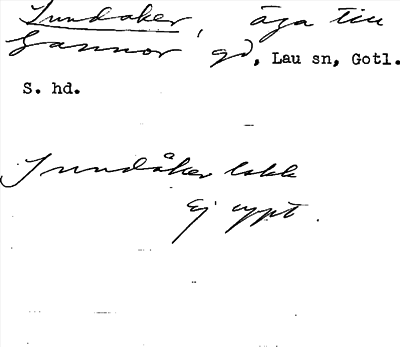 Sundåker, äga till
Gannor gd, Lau sn, Gotl.
S. hd.
Sundåker lokk
Ej uppt.